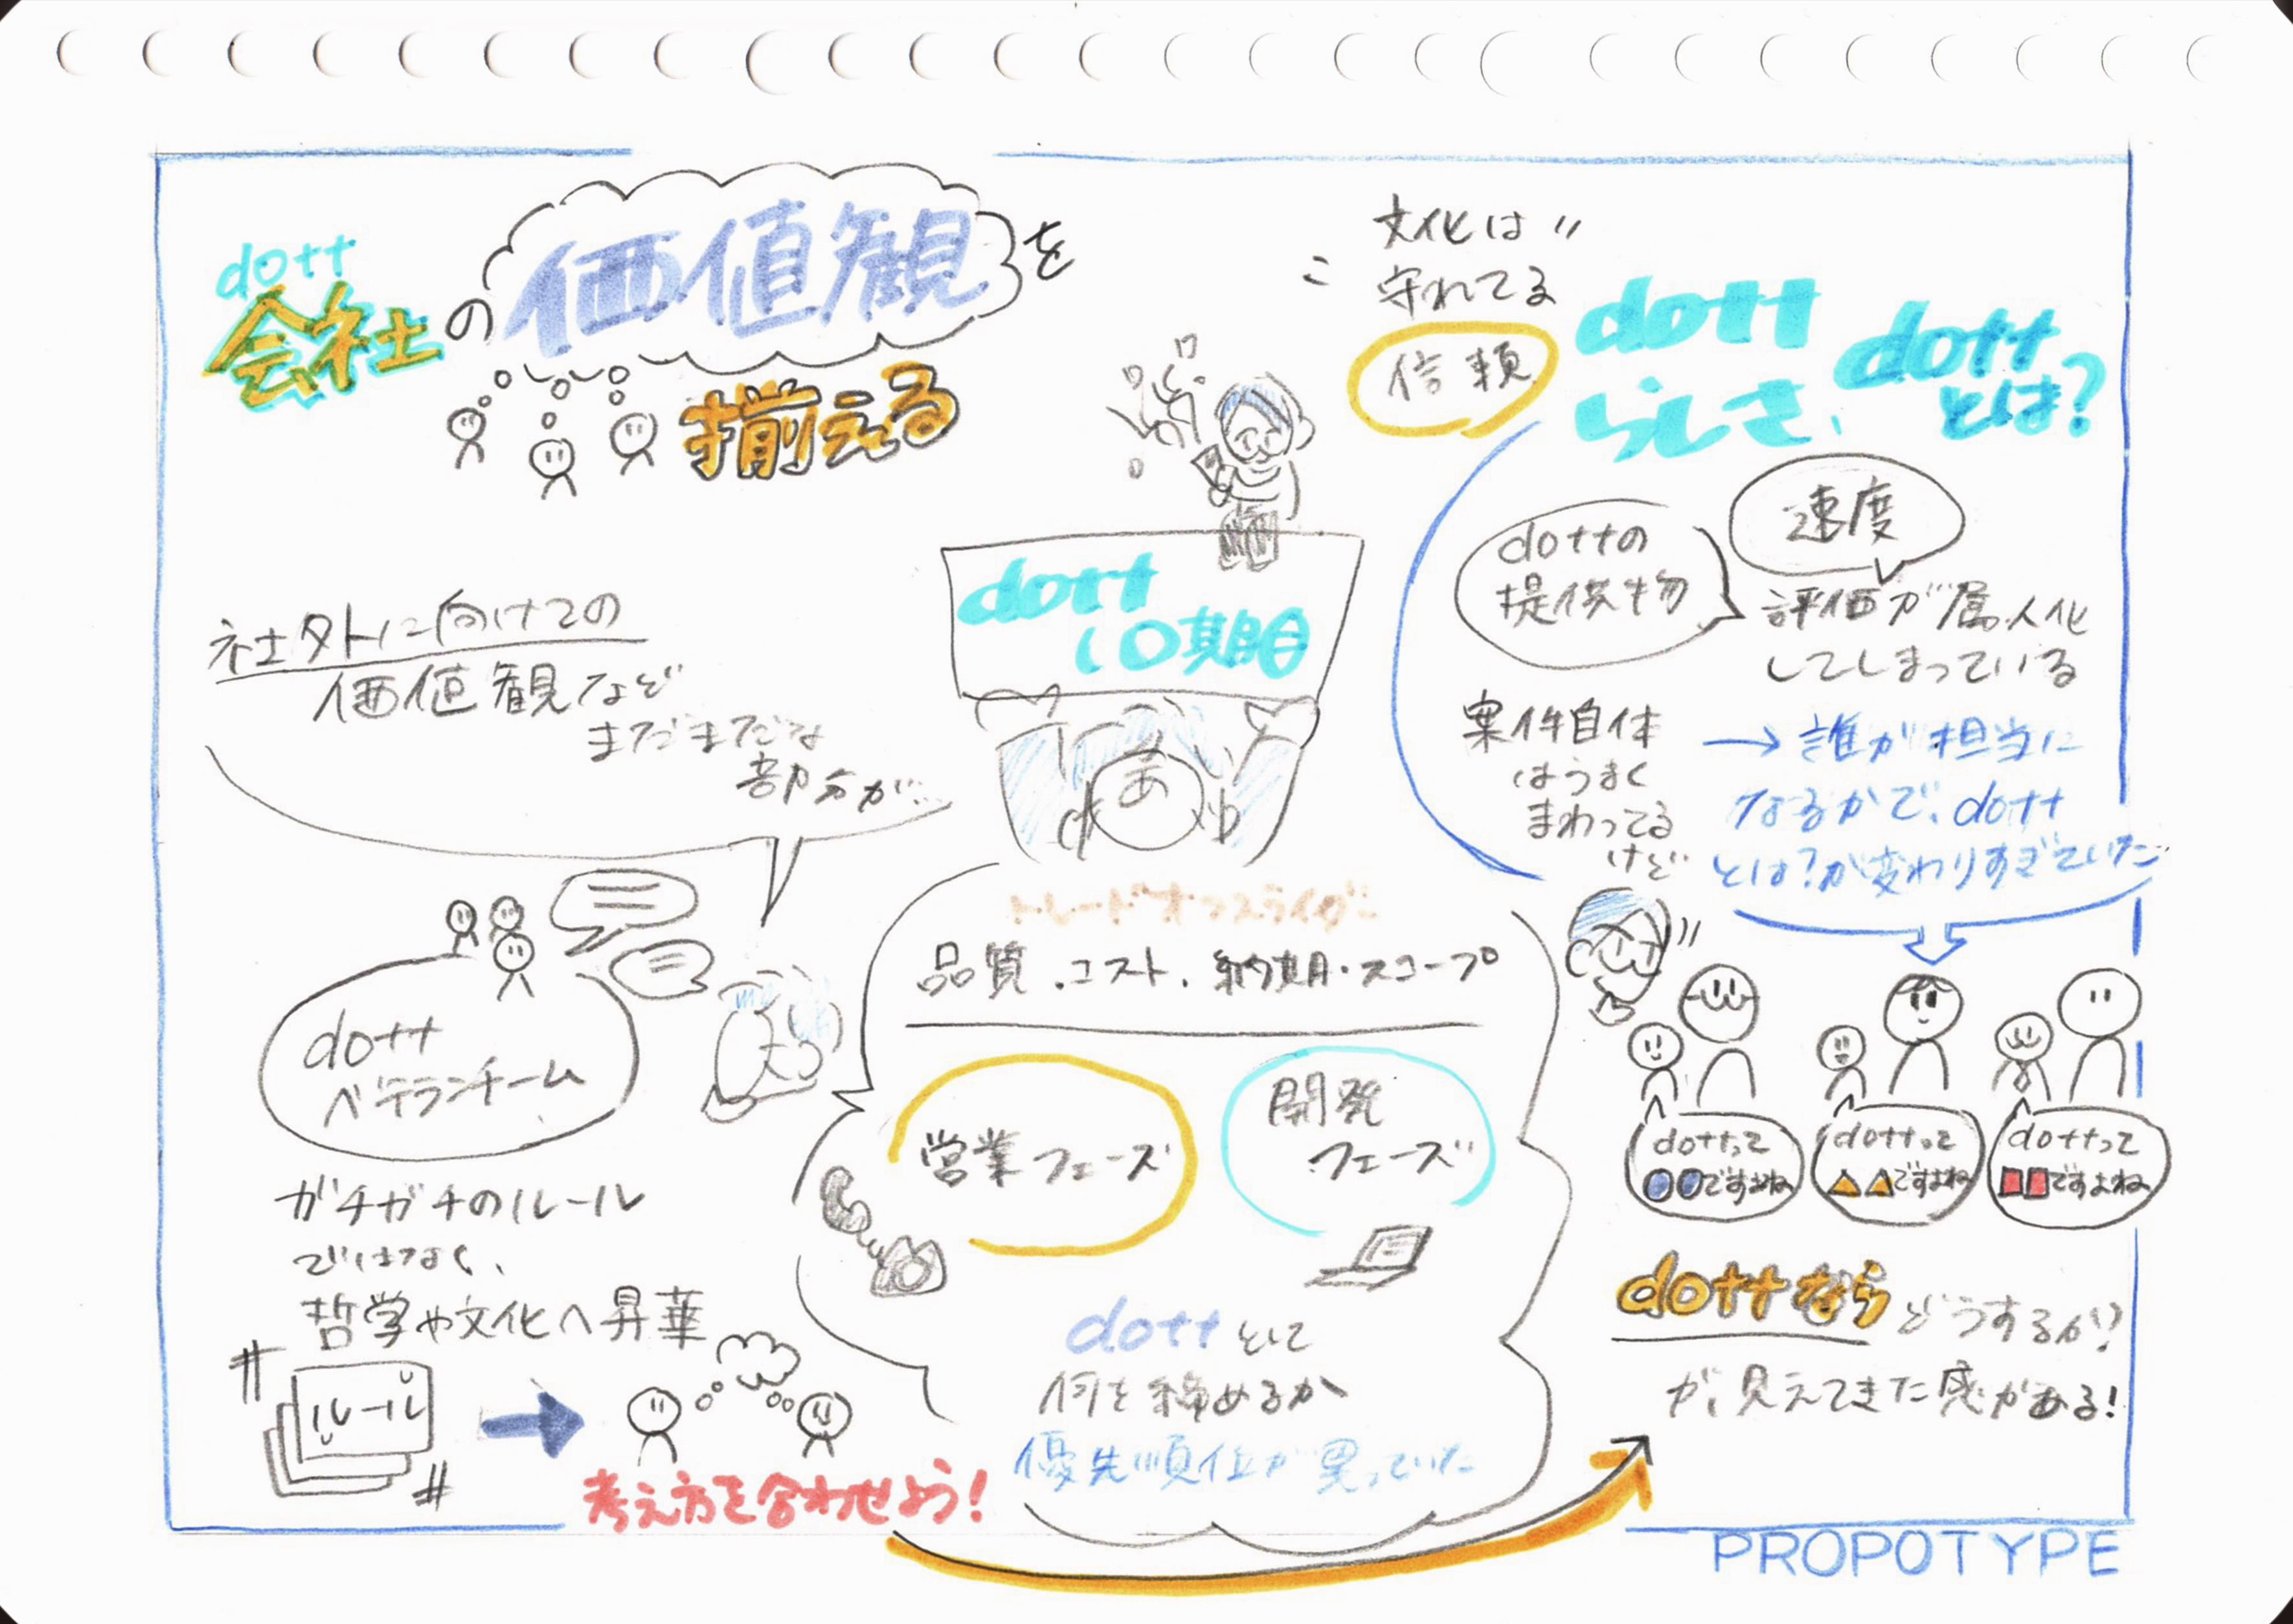 dott
会社の価値観を
揃える
社外に向けての
価値観など
まだまだな
部分が…
dott
ベテランチーム
ガチガチのルール
ではなく、
哲学や文化へ昇華
ルール
考え方を合わせよう!
dott
10期目
あ
トレードオフスライダー
品質・コスト・納期・スコープ
営業フェーズ
開発
フェーズ
dottとして
何を締めるか
優先順位が異っていた
文化は
守れてる
信頼
dott
らしさ、
dott
とは?
dottの
提供物
速度
評価が属人化
してしまっている
案件自体
はうまく
まわってる
けど
→誰が担当に
なるかで、dott
とは?が変わりすぎていた…
dottって
●●ですよね
dottって
▲▲ですよね
dottって
■■ですよね
dottなら どうするか?
が、見えてきた感がある!
PROPOTYPE